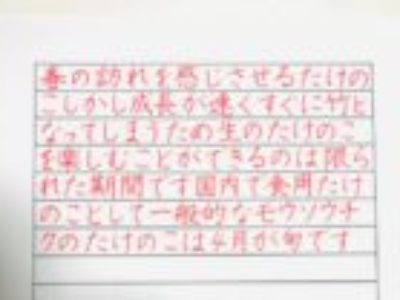 春の訪れを感じさせるたけの
こしかし成長が速くすぐに竹と
なってしまうため生のたけのこ
を楽しむことができるのは限ら
れた期間です国内で食用たけ
のことして一般的なモウソウチ
クのたけのこは4月が旬です